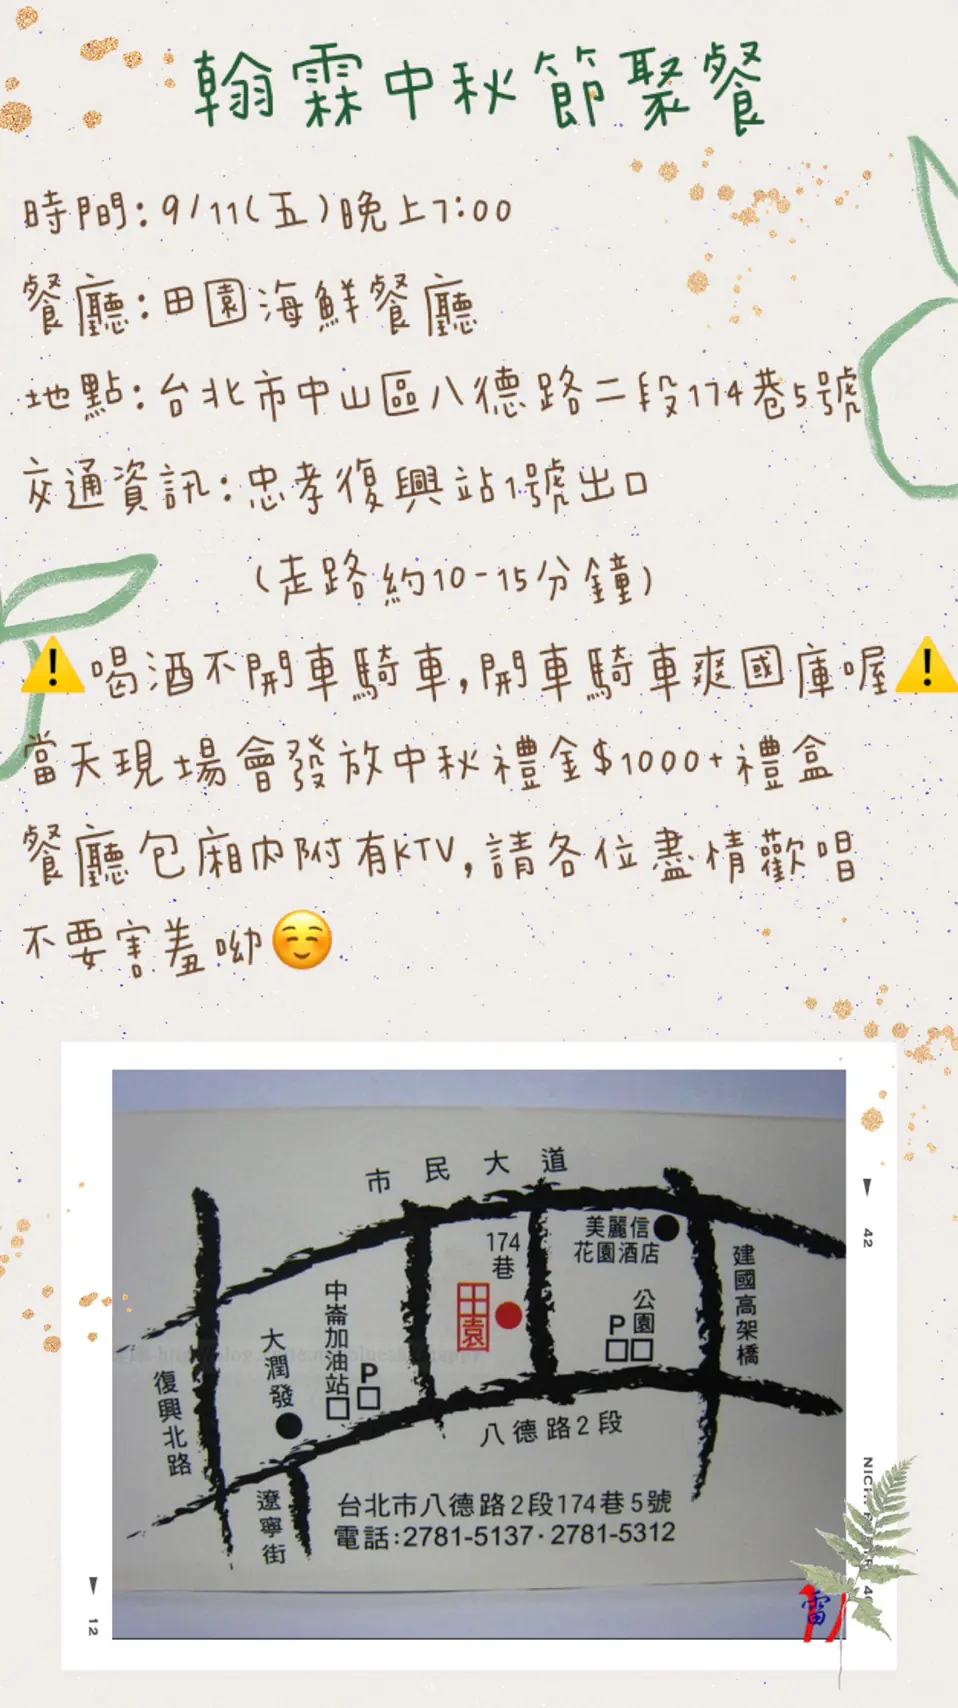 翰霖中秋節聚餐
時間:9/11(五)晚上7:00
餐廳:田園海鮮餐廳
地點:台北市中山區八德路二段174巷5號
交通資訊:忠孝復興站1號出口
(走路約10-15分鐘)
⚠️喝酒不開車騎車,開車騎車爽國庫喔⚠️
當天現場會發放中秋禮金$1000+禮盒
餐廳包廂內附有KTV,請各位盡情歡唱
不要害羞呦☺️
市民大道
174巷
美麗信
花園酒店
建國高架橋
田園
公園
P
中崙加油站
P
大潤發
復興北路
八德路2段
遼寧街
台北市八德路2段174巷5號
電話:2781-5137·2781-5312
雷
42
12